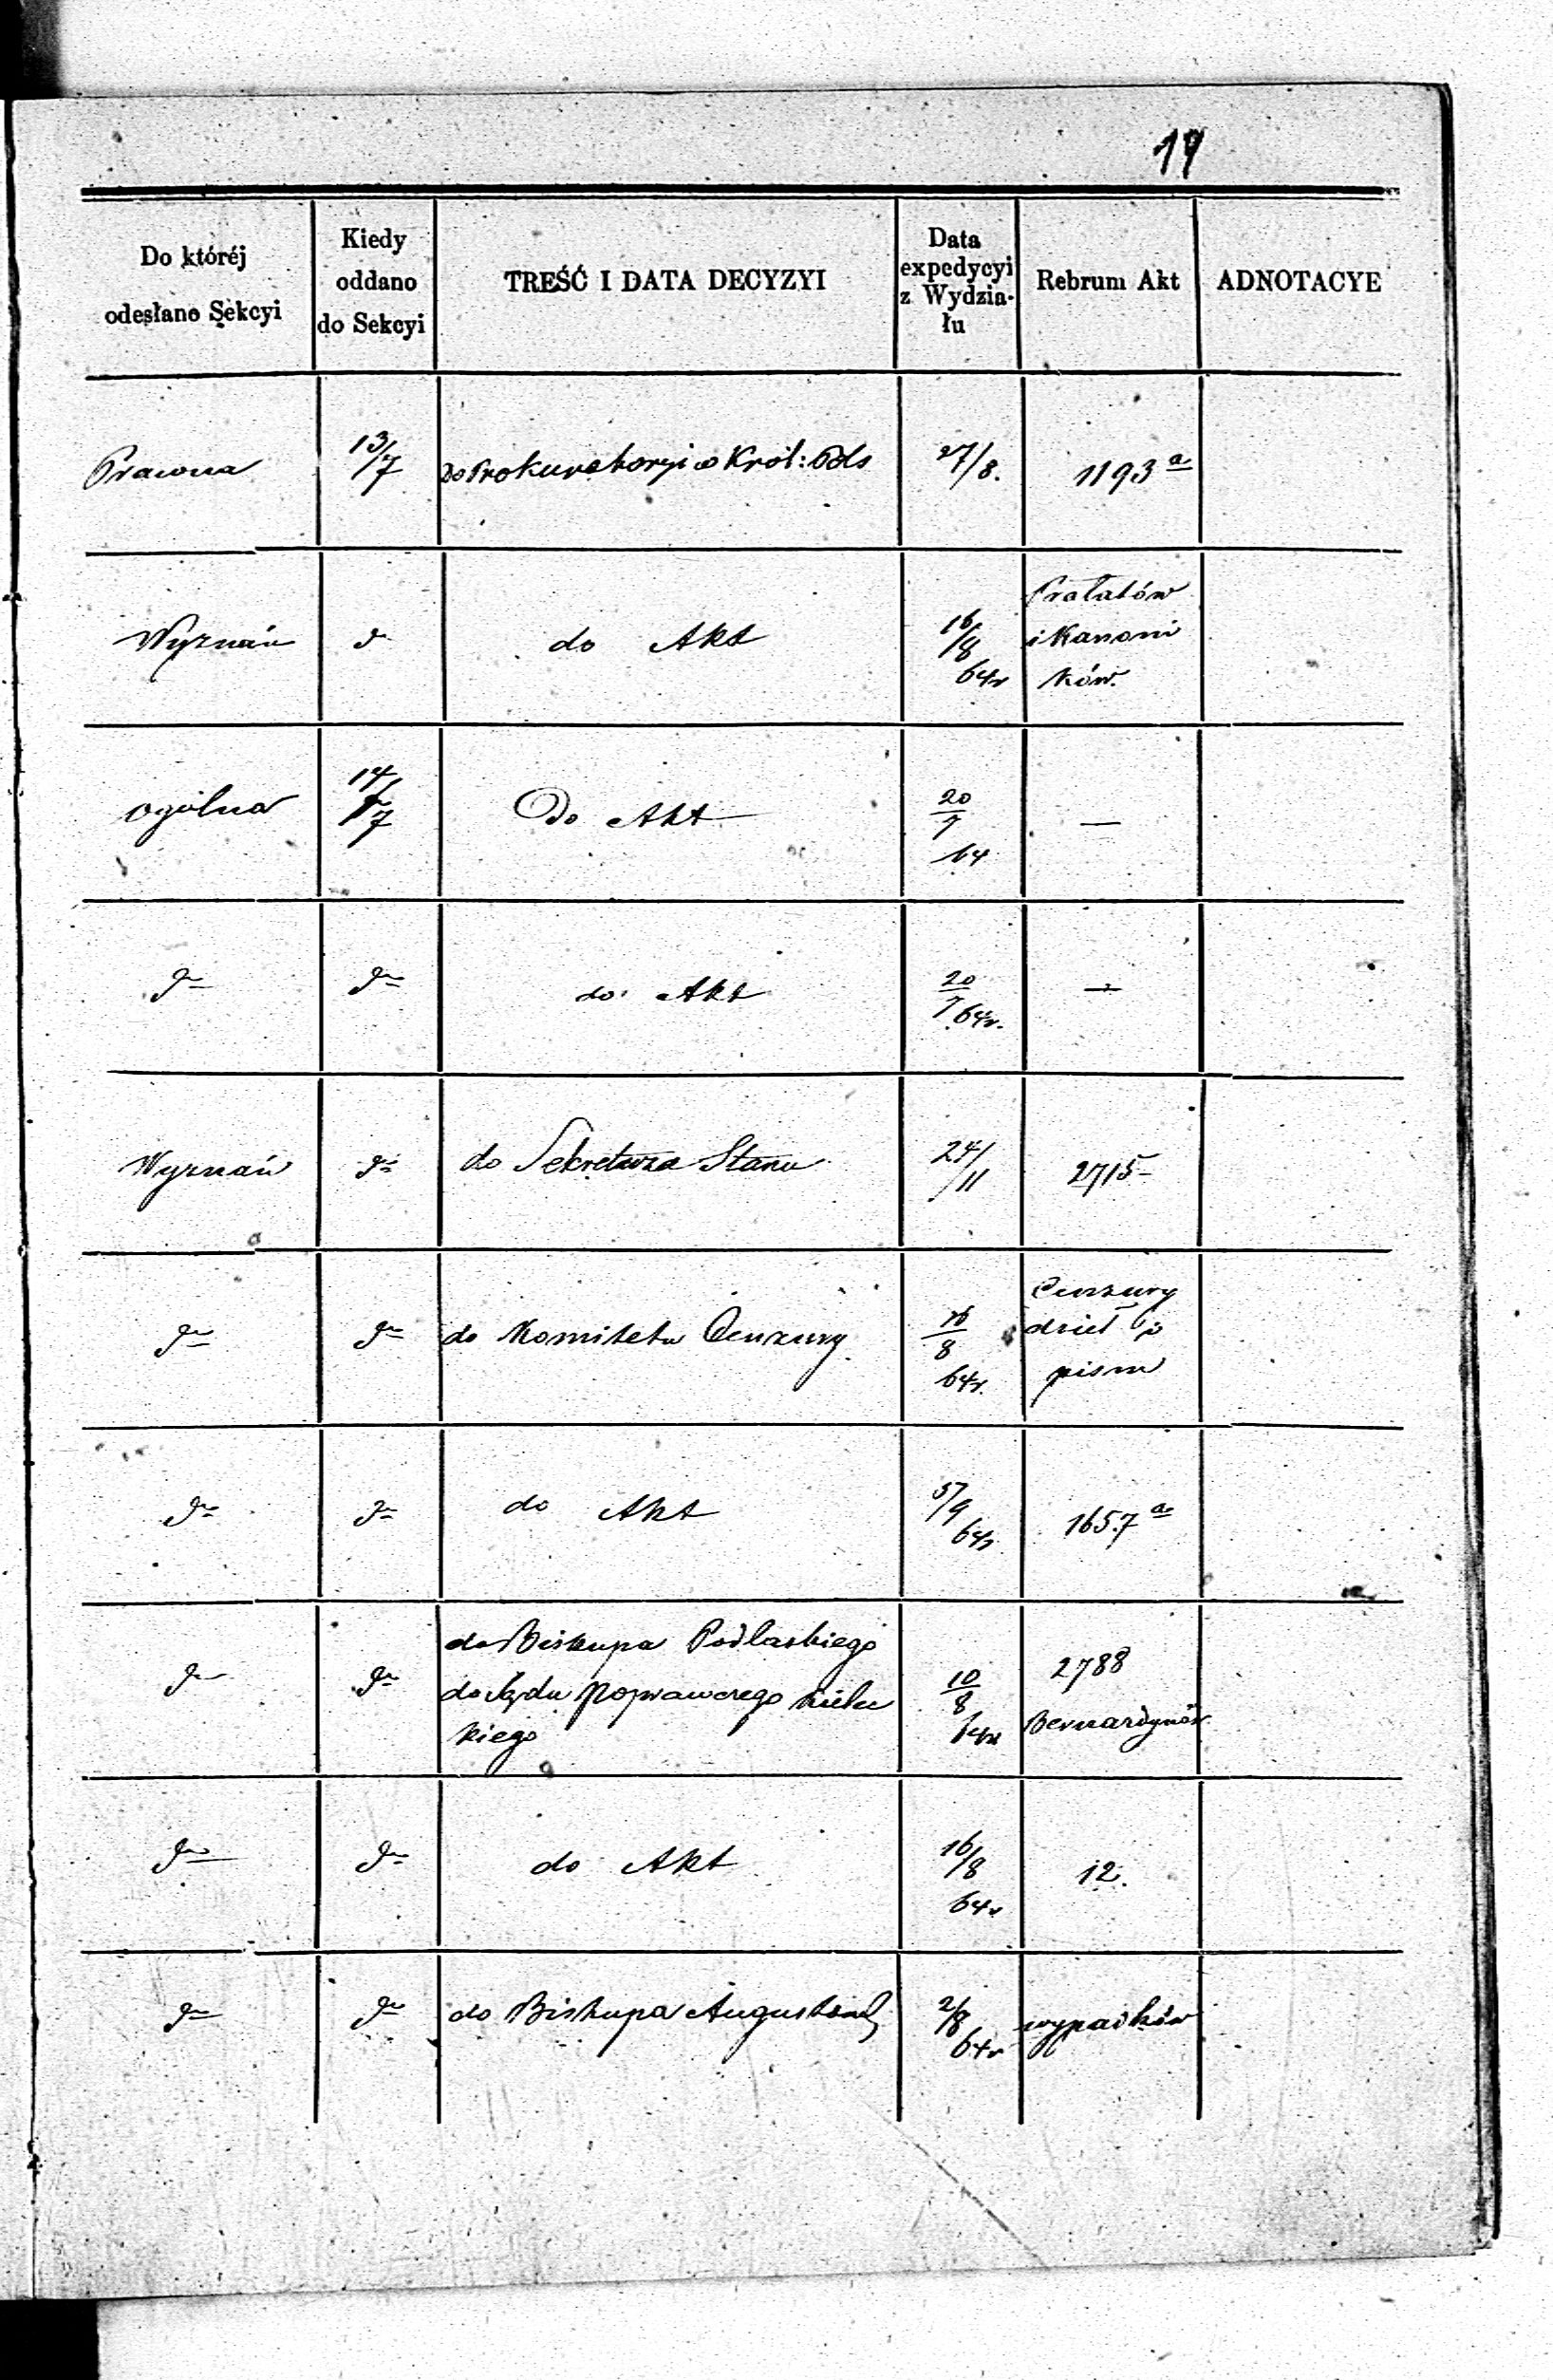 19
Do któréj
odesłano Sekcyi
Kiedy
oddano
do Sekcyi
TREŚĆ I DATA DECYZYI
Data
expedycyi
z Wydzia-
łu
Rebrum Akt
ADNOTACYE
Prawna 13/7 Do Prokuratoryi w Król: Pols 27/8. 1193 a
Wyznań d do Akt 16/8 64r Prałatów
i Kanoni
ków.
Ogólna 14/7 Do Akt 20/7 64 —
dto dto do Akt 20/7 64r. —
Wyznań dto do Sekretarza Stanu 24/11 2715
dto dto do Komitetu Cenzury 16/8 64r. Cenzury
dzieł i
pism
dto dto do Akt 5/9 64r 1657 a
dto dto do Biskupa Podlaskiego
do Sądu Poprawczego Kielec
kiego 10/8 64r 2788
Bernardynów
dto dto do Akt 16/8 64r 12.
dto dto do Biskupa Augustows 2/8 64r wypadków